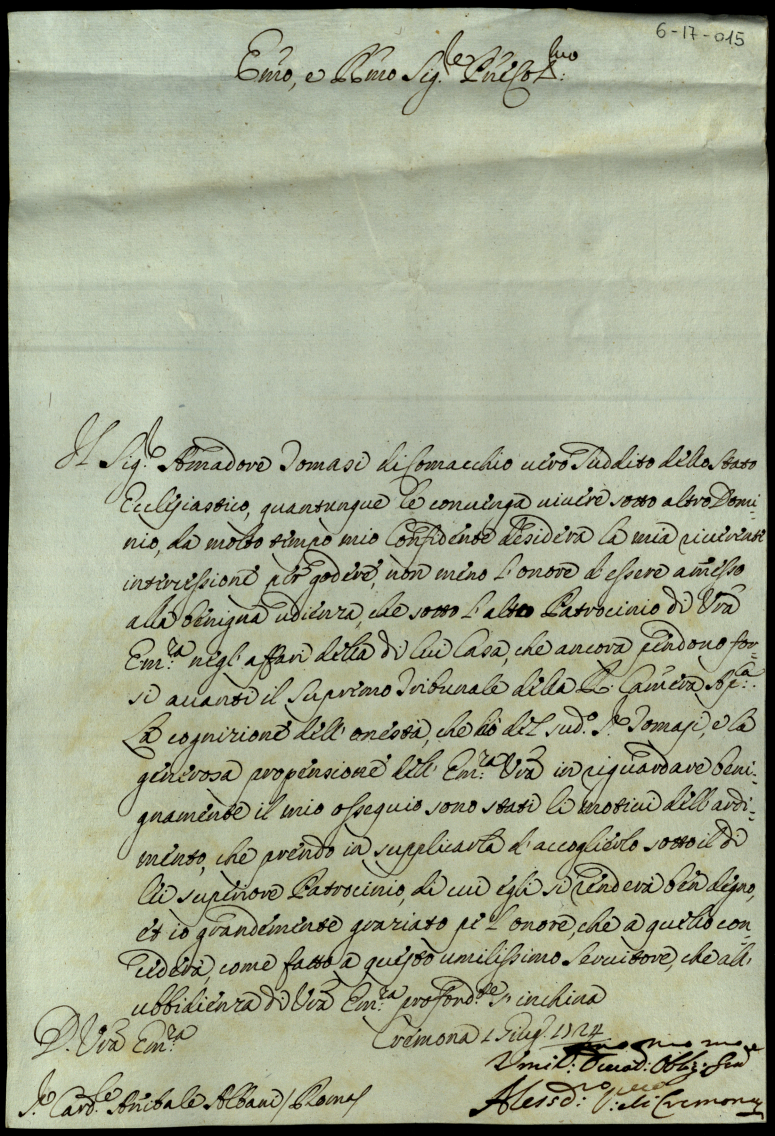 6-17-015
Em̃o, e R̃mo Sig.re P̃ne Col.mo
Il Sig.r Amadore Tomasi di Comacchio vero suddito dello stato
Ecclesiastico, quantunque le convenga vivere sotto altro Domi-
nio, da molto tempo mio Confidente desidera la mia riverente
intercessione per godere, non meno l'onore d'essere am̃esso
alla benigna udienza, che sotto l'alto Patrocinio di Vr̃a
Em.za negl'affari della di lui Casa, che ancora pendono for-
si avanti il supremo Tribunale della R. Cam̃era Ap.ca.
La cognizione dell'onestà, che hò del sud.o S.r Tomasi, e la
generosa propensione dell'Em.za Vr̃a in riguardare beni-
gnamente il mio ossequio sono stati li motivi dell'ardi-
mento, che prendo in supplicarla d'accoglierlo sotto il di
lei superiore Patrocinio, di cui egli si renderà ben degno,
et io grandemente graziato pe l'onore, che a quello con-
cederà, come fatto a questo umilissimo servitore, che all'
ubbidienza di Vr̃a Em.za profond.te s'inchina
D. Vr̃a Em.za
Cremona 1 Giug. 1724
Umil.mo Devot.mo Obblig.mo Ser.e
S.r Card.le Anibale Albani / Roma /
Aless.dro V. di Cremona